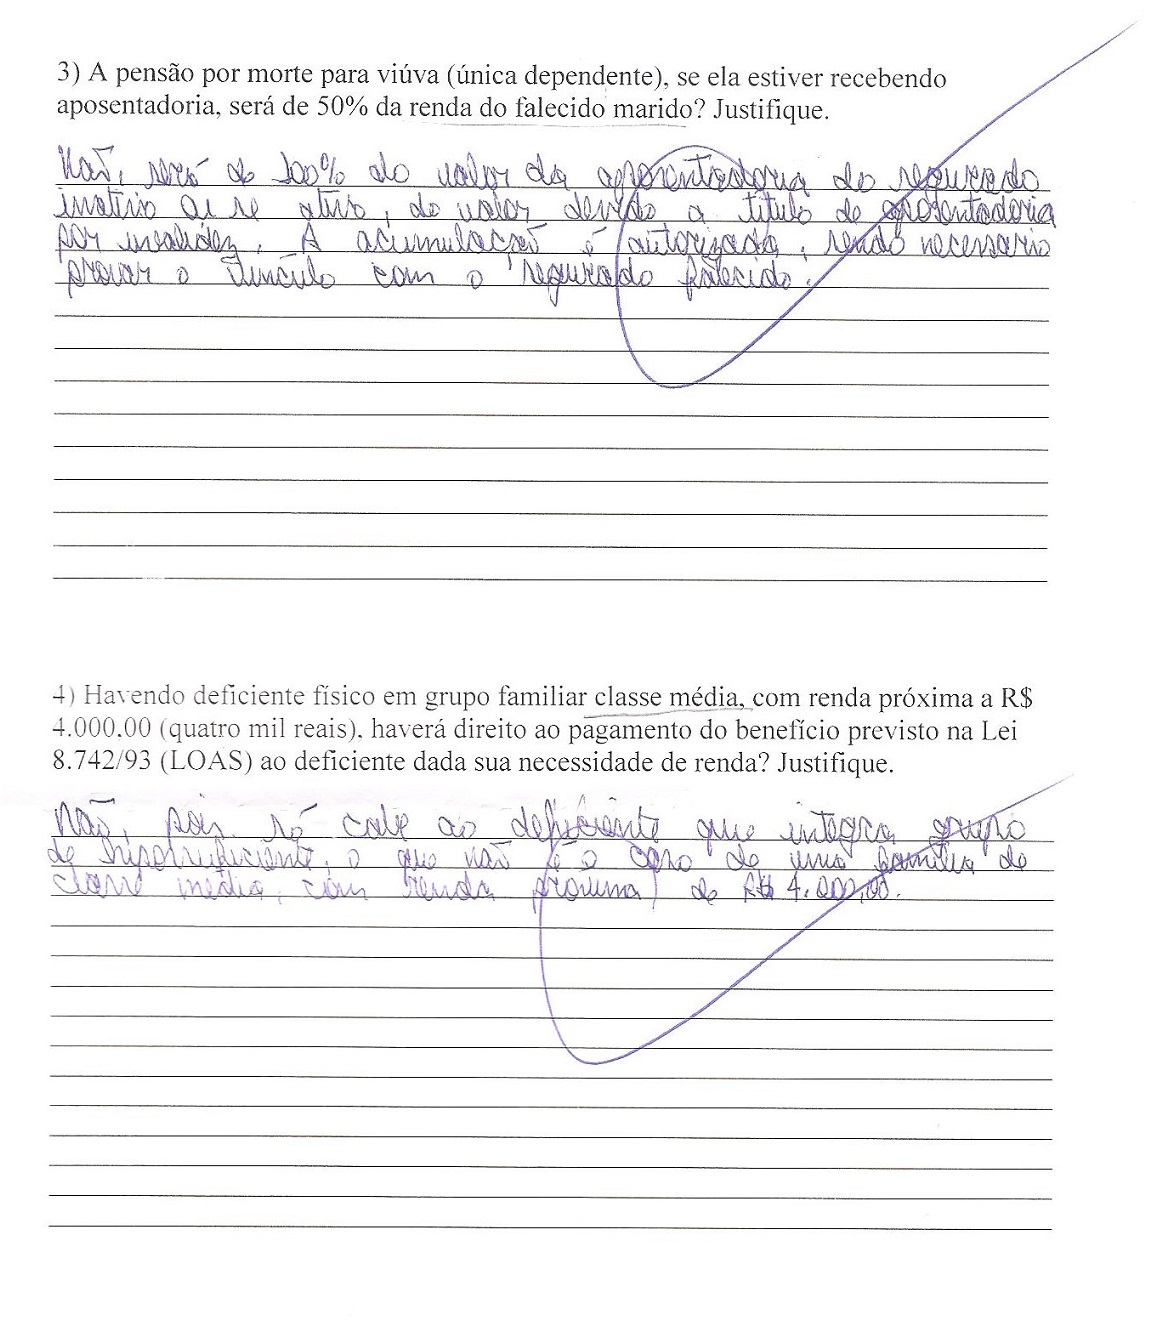 3) A pensão por morte para viúva (única dependente), se ela estiver recebendo
aposentadoria, será de 50% da renda do falecido marido? Justifique.
Não, será de 100% do valor da aposentadoria do segurado
inativo ou se ativo, do valor devido a título de aposentadoria
por invalidez. A acumulação é autorizada, sendo necessario
provar o vinculo com o segurado falecido.
4) Havendo deficiente físico em grupo familiar classe média, com renda próxima a R$
4.000,00 (quatro mil reais), haverá direito ao pagamento do benefício previsto na Lei
8.742/93 (LOAS) ao deficiente dada sua necessidade de renda? Justifique.
Não, pois só cabe ao deficiente que integra grupo
de hiposuficiente, o que não é o caso de uma familia de
classe média, com renda proxima de R$ 4.000,00.